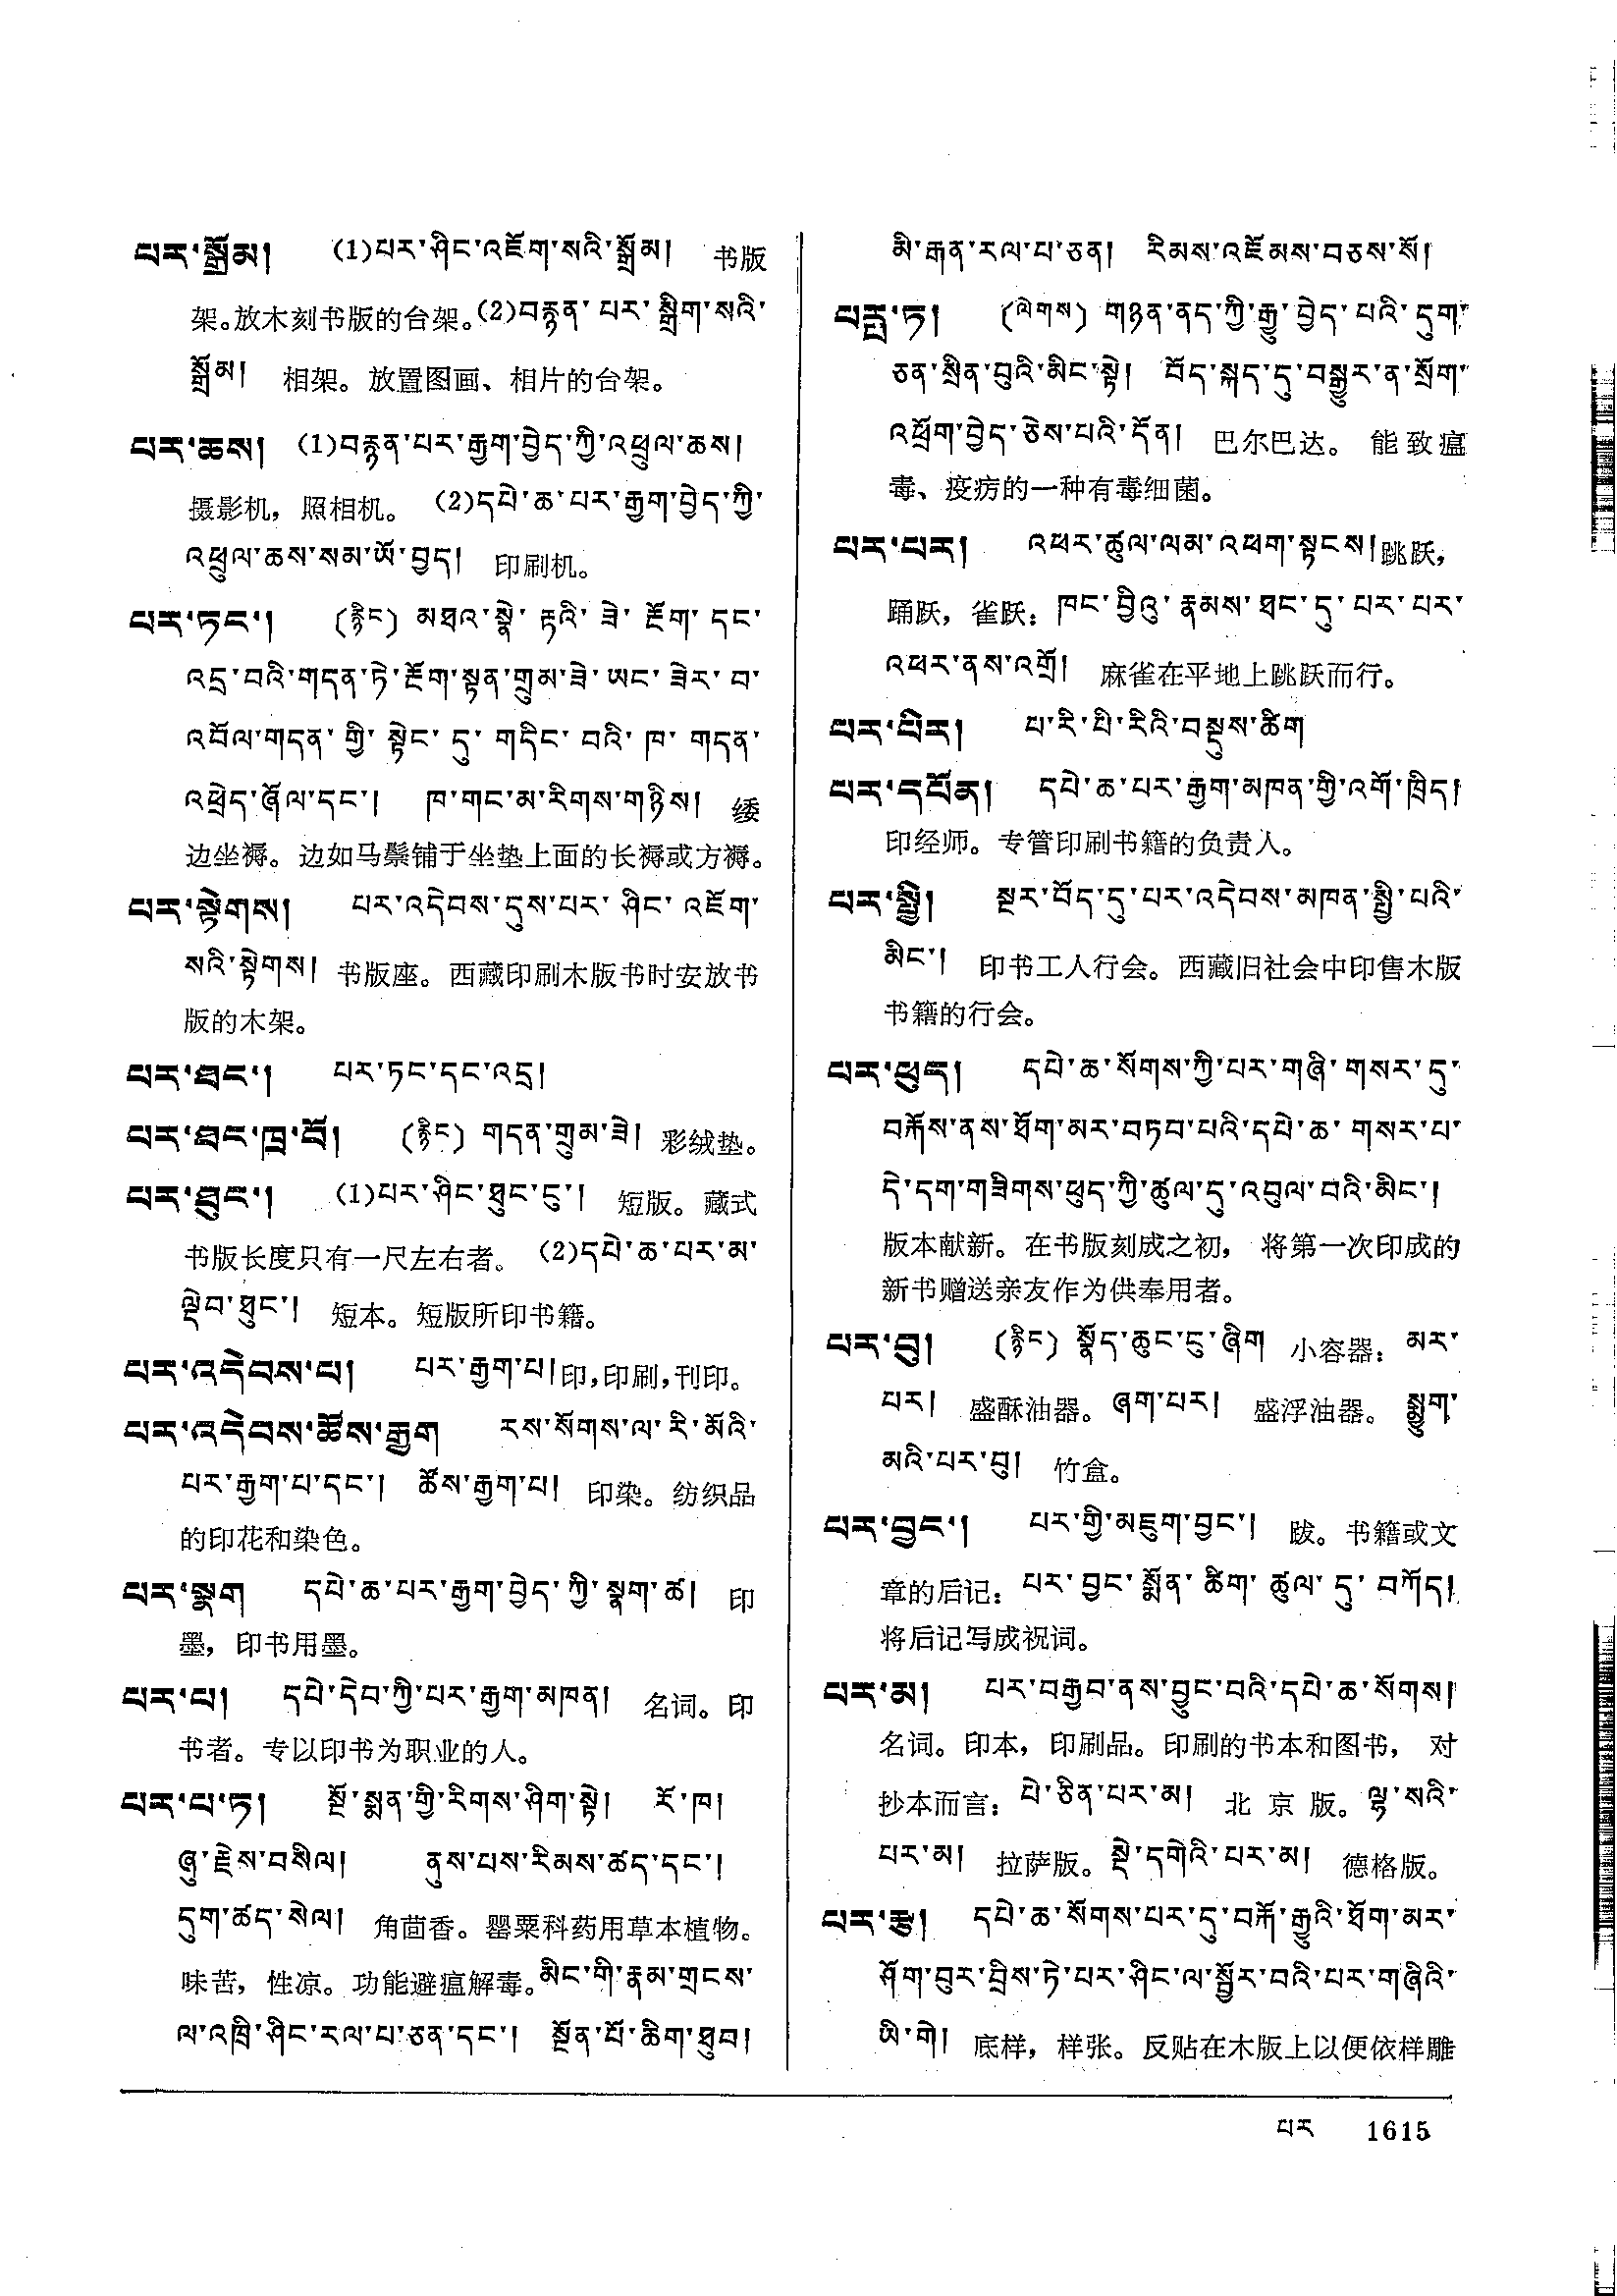 པར་སྒྲོམ། (1)པར་ཤིང་འཇོག་སའི་སྒྲོམ། 书版
架。放木刻书版的台架。(2)བརྙན་པར་སྒྲིག་སའི་
སྒྲོམ། 相架。放置图画、相片的台架。
པར་ཆས། (1)བརྙན་པར་རྒྱག་བྱེད་ཀྱི་འཕྲུལ་ཆས།
摄影机，照相机。 (2)དཔེ་ཆ་པར་རྒྱག་བྱེད་ཀྱི་
འཕྲུལ་ཆས་སམ་ཡོ་བྱད། 印刷机。
པར་ཏང་། (རྙིང) མཐའ་སྣེ་རྟའི་ཟེ་རྔོག་དང་
འདྲ་བའི་གདན་ཏེ་རྔོག་སྟན་གྲུམ་ཟེ་ཡང་ཟེར་བ་
འབོལ་གདན་གྱི་སྟེང་དུ་གདིང་བའི་ཁ་གདན་
འཕྲེད་ཞོལ་དང་། ཁ་གང་མ་རིགས་གཉིས། 緌
边坐褥。边如马鬃铺于坐垫上面的长褥或方褥。
པར་སྟེགས། པར་འདེབས་དུས་པར་ཤིང་འཇོག་
སའི་སྟེགས། 书版座。西藏印刷木版书时安放书
版的木架。
པར་ཐང་། པར་ཏང་དང་འདྲ།
པར་ཐང་ཁྲ་བོ། (རྙིང) གདན་གྲུམ་ཟེ། 彩绒垫。
པར་ཐུང་། (1)པར་ཤིང་ཐུང་ངུ་། 短版。藏式
书版长度只有一尺左右者。 (2)དཔེ་ཆ་པར་མ་
ལྡེབ་ཐུང་། 短本。短版所印书籍。
པར་འདེབས་པ། པར་རྒྱག་པ། 印,印刷,刊印。
པར་འདེབས་ཚོས་རྒྱག རས་སོགས་ལ་རི་མོའི་
པར་རྒྱག་པ་དང་། ཚོས་རྒྱག་པ། 印染。纺织品
的印花和染色。
པར་སྣག དཔེ་ཆ་པར་རྒྱག་བྱེད་ཀྱི་སྣག་ཚ། 印
墨，印书用墨。
པར་པ། དཔེ་དེབ་ཀྱི་པར་རྒྱག་མཁན། 名词。印
书者。专以印书为职业的人。
པར་པ་ཏ། སྔོ་སྨན་གྱི་རིགས་ཤིག་སྟེ། རོ་ཁ།
ཞུ་རྗེས་བསིལ། ནུས་པས་རིམས་ཚད་དང་།
དུག་ཚད་སེལ། 角茴香。罂粟科药用草本植物。
味苦，性凉。功能避瘟解毒。མིང་གི་རྣམ་གྲངས་
ལ་འཁྲི་ཤིང་རལ་པ་ཅན་དང་། སྔོན་པོ་ཆིག་ཐུབ།
མི་རྒན་རལ་པ་ཅན། རིམས་འཇོམས་བཅས་སོ།
པརྤ་ཏ། (ལེགས) གཉན་ནད་ཀྱི་རྒྱུ་བྱེད་པའི་དུག་
ཅན་སྲིན་བུའི་མིང་སྟེ། བོད་སྐད་དུ་བསྒྱུར་ན་སྲོག་
འཕྲོག་བྱེད་ཅེས་པའི་དོན། 巴尔巴达。 能致瘟
毒、疫疠的一种有毒细菌。
པར་པར། འཕར་ཚུལ་ལམ་འཕག་སྟངས། 跳跃，
踊跃，雀跃：ཁང་བྱིའུ་རྣམས་ཐང་དུ་པར་པར་
འཕར་ནས་འགྲོ། 麻雀在平地上跳跃而行。
པར་པིར། པ་རི་པི་རིའི་བསྡུས་ཚིག
པར་དཔོན། དཔེ་ཆ་པར་རྒྱག་མཁན་གྱི་འགོ་ཁྲིད།
印经师。专管印刷书籍的负责人。
པར་སྤྱི། སྔར་བོད་དུ་པར་འདེབས་མཁན་སྤྱི་པའི་
མིང་། 印书工人行会。西藏旧社会中印售木版
书籍的行会。
པར་ཕུད། དཔེ་ཆ་སོགས་ཀྱི་པར་གཞི་གསར་དུ་
བརྐོས་ནས་ཐོག་མར་བཏབ་པའི་དཔེ་ཆ་གསར་པ་
དེ་དག་གཟིགས་ཕུད་ཀྱི་ཚུལ་དུ་འབུལ་བའི་མིང་།
版本献新。在书版刻成之初， 将第一次印成的
新书赠送亲友作为供奉用者。
པར་བུ། (རྙིང) སྣོད་ཆུང་ངུ་ཞིག 小容器：མར་
པར། 盛酥油器。ཞག་པར། 盛浮油器。 སྨྱུག་
མའི་པར་བུ། 竹盒。
པར་བྱང་། པར་གྱི་མཇུག་བྱང་། 跋。书籍或文
章的后记：པར་བྱང་སྨོན་ཚིག་ཚུལ་དུ་བཀོད།
将后记写成祝词。
པར་མ། པར་བརྒྱབ་ནས་བྱུང་བའི་དཔེ་ཆ་སོགས།
名词。印本，印刷品。印刷的书本和图书， 对
抄本而言：པེ་ཅིན་པར་མ། 北京版。ལྷ་སའི་
པར་མ། 拉萨版。སྡེ་དགེའི་པར་མ། 德格版。
པར་རྩ། དཔེ་ཆ་སོགས་པར་དུ་བརྐོ་རྒྱུའི་ཐོག་མར་
ཤོག་བུར་བྲིས་ཏེ་པར་ཤིང་ལ་སྦྱོར་བའི་པར་གཞིའི་
ཡི་གེ། 底样，样张。反贴在木版上以便依样雕
པར 1615